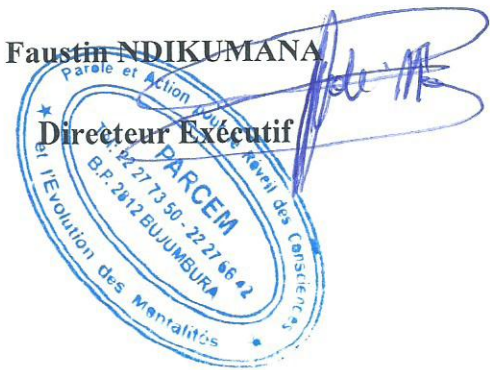 Faustin NDIKUMANA
Directeur Exécutif
Parole et Action pour le Réveil des Consciences
et l'Evolution des Mentalités
PARCEM
Tél. 22 27 73 50 - 22 27 66 42
B.P. 2812 BUJUMBURA